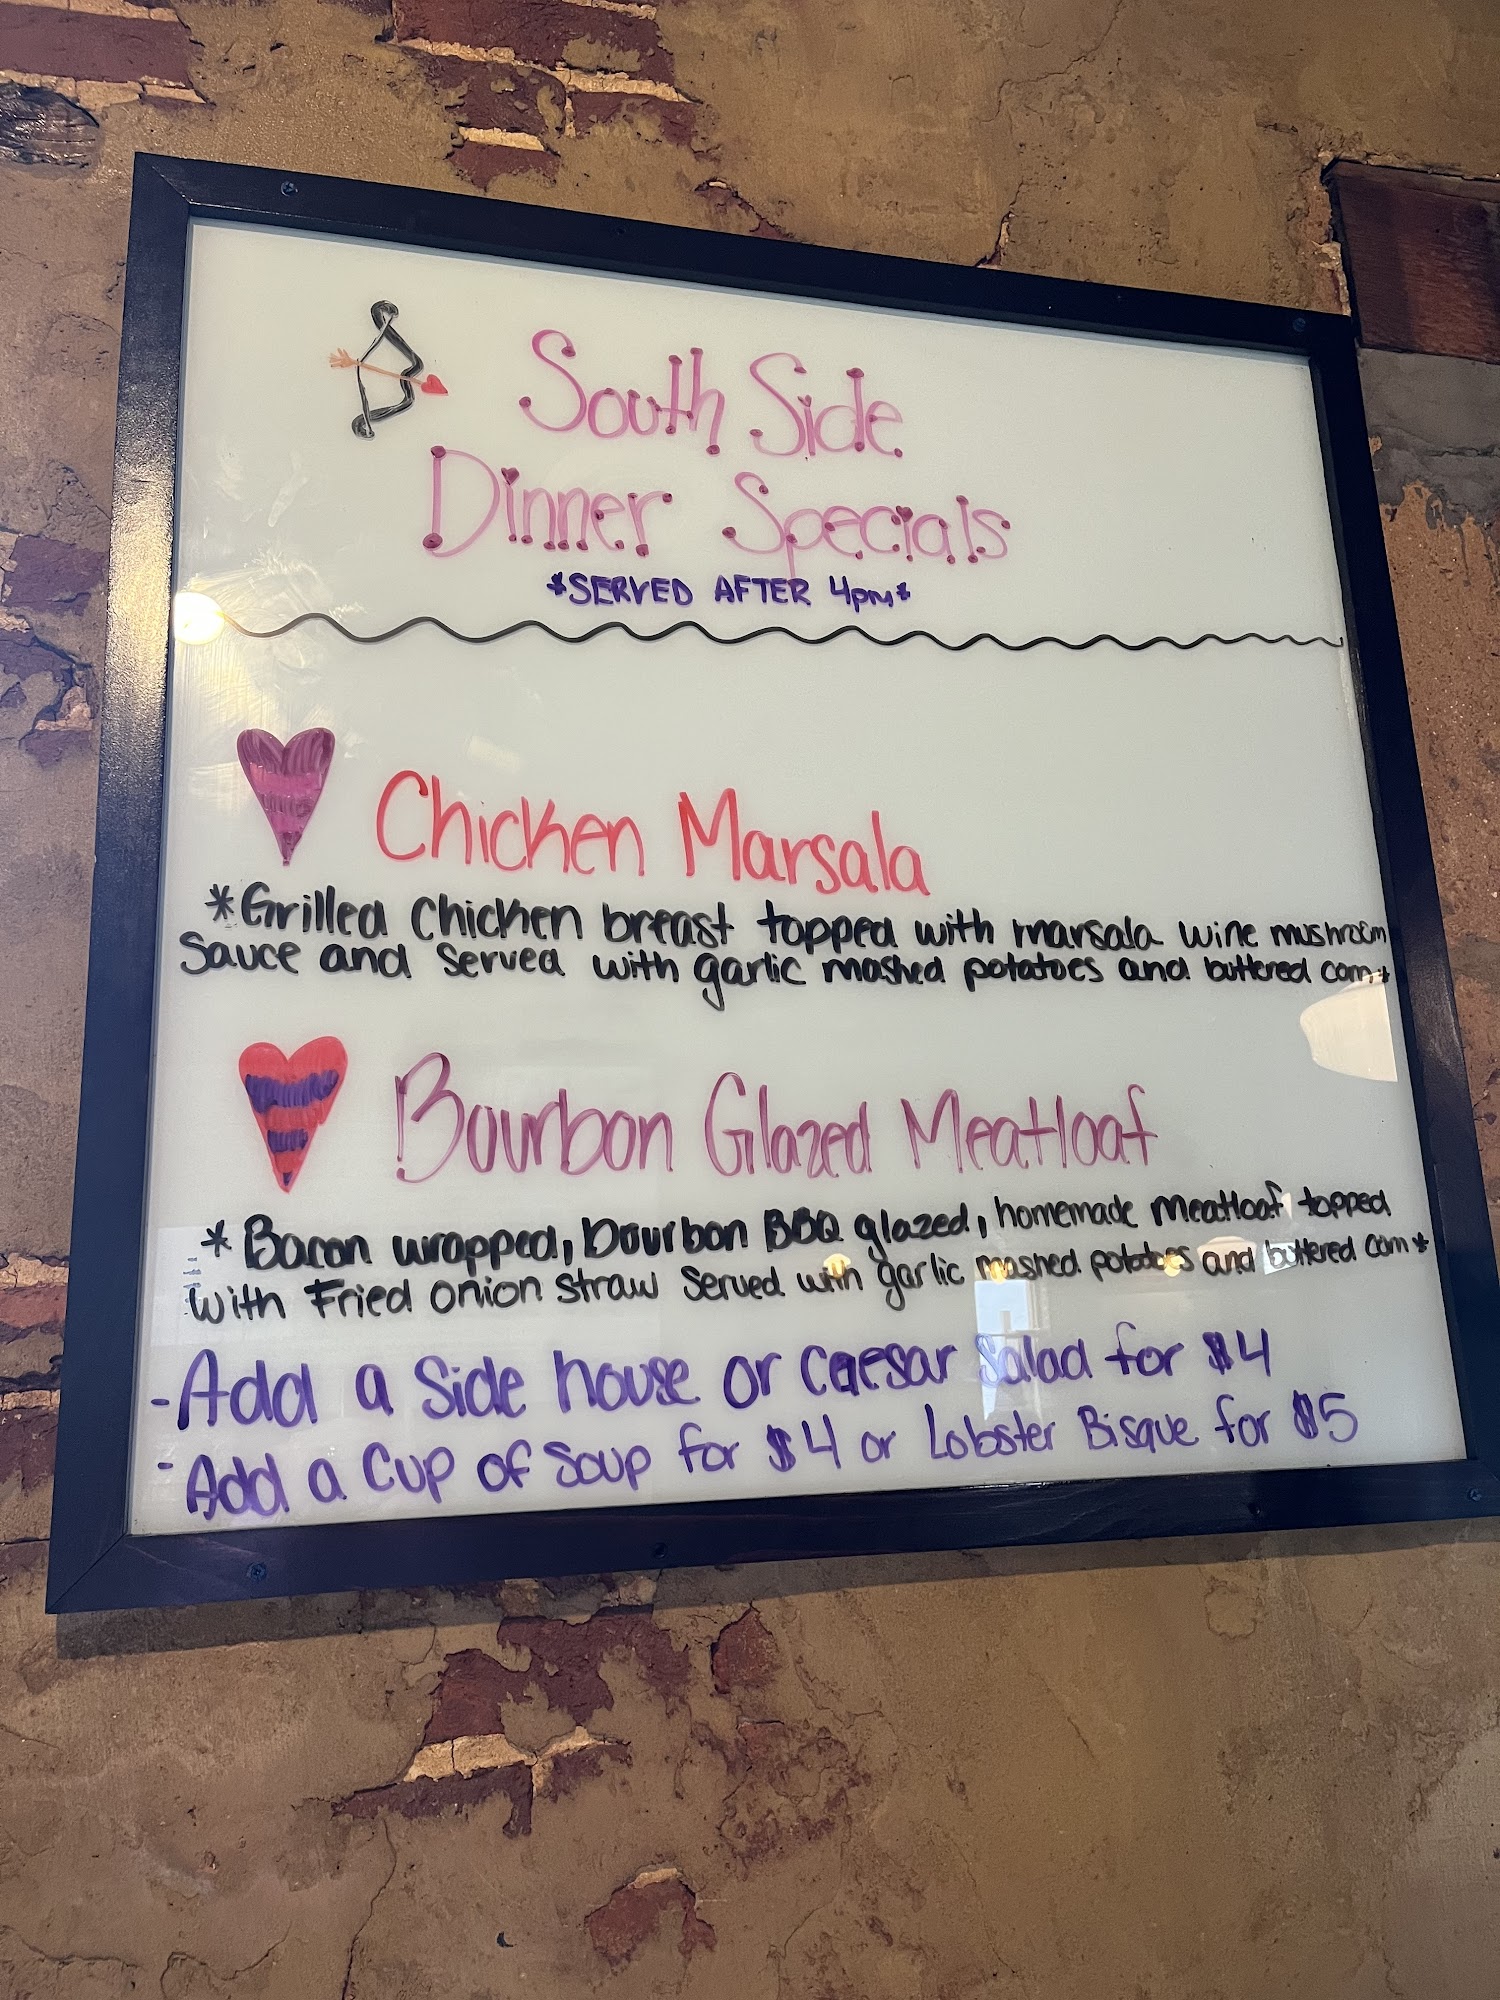 South Side
Dinner Specials
*SERVED AFTER 4pm*
Chicken Marsala
*Grilled chicken breast topped with marsala wine mushroom
sauce and served with garlic mashed potatoes and buttered corn*
Bourbon Glazed Meatloaf
*Bacon wrapped, bourbon BBQ glazed, homemade meatloaf topped
with Fried onion straw served with garlic mashed potatoes and buttered corn*
-Add a side house or caesar salad for $4
-Add a cup of soup for $4 or Lobster Bisque for $5